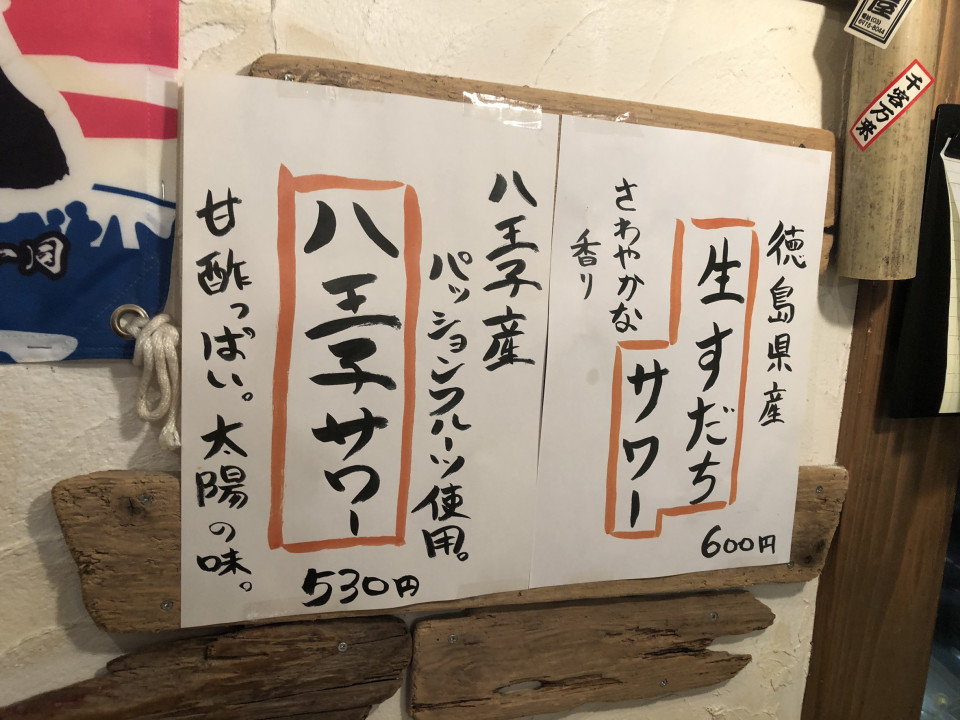 徳島県産
生すだち
サワー
さわやかな
香り
600円
八王子産
パッションフルーツ使用。
八王子サワー
甘酢っぱい。太陽の味。
530円
千客万来
一同